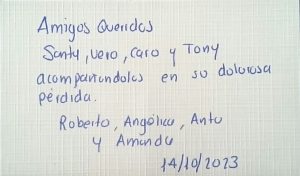 Amigos Queridos
Santy, Vero, Caro y Tony
acompañandolos en su dolorosa
pérdida.
Roberto, Angélica, Antu
y Amanda
14/10/2023